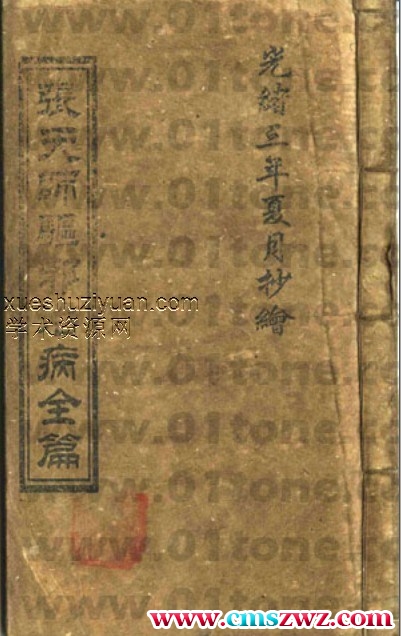 光緒三年夏月抄繪
張天師驅
病全篇
www.01tone.
xueshuziyuan.com
学术资源网
www.cmszwz.com